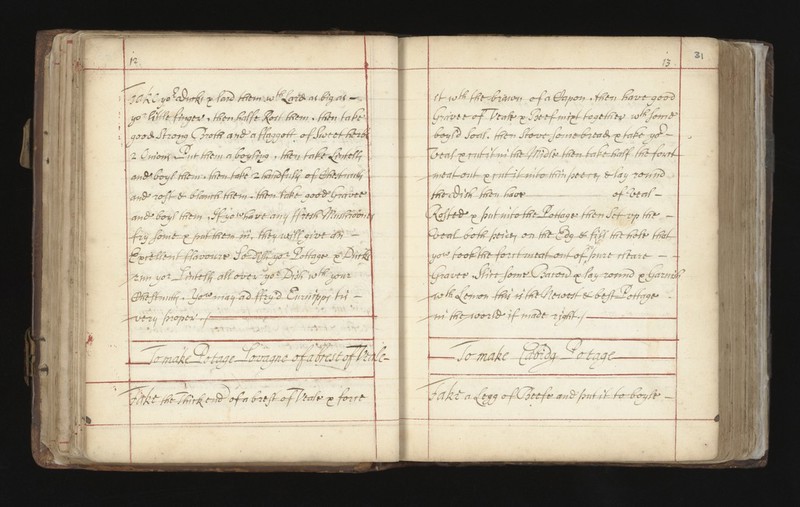 12
Take yor Ducks & lard them wth Lard as big as
yor little finger, then halfe Rost them, then take
good Strong Broth and a ffaggott of Sweet herbs
2 Onions Put them a boyling, then take Lentells
and boyl them, then take 2 handfulls of Chesnuts
and rost & blanch them, then take good Gravee
and boyl them. If you have any ffresh Mushroones
fry some & put them in, they will give an
Excellent flavoure So Dish yor Pottage & Ducks
run yor Lentells all over yor Dish wth your
Chesnuts. You may ad ffryd Parsnipps tis
very proper.
To make Potage Lovagne of a brest of Veale
Take the Thick end of a brest of Veale & force
13
31
it wth the brawn of a Capon, then have good
Gravee of Veale & Beef mixt together wth some
boyld Soal. then Stove some bread & take yor
Veal & cut it in the Midle then take half the forct
meat out & cut it into thin peeces & lay round
the Dish then have of Veal
Rosted & put into the Pottage then Set up the
Veal both peices on the Edg & fill the hole that
you took the forct meat out of pure cleare
Gravee. Slice some Bacond & lay round & Garnish
wth Lemon this is the Newest & best Pottage
in the world if made right.
To make Potage
Take a Legg of Beefe and put it to boyle